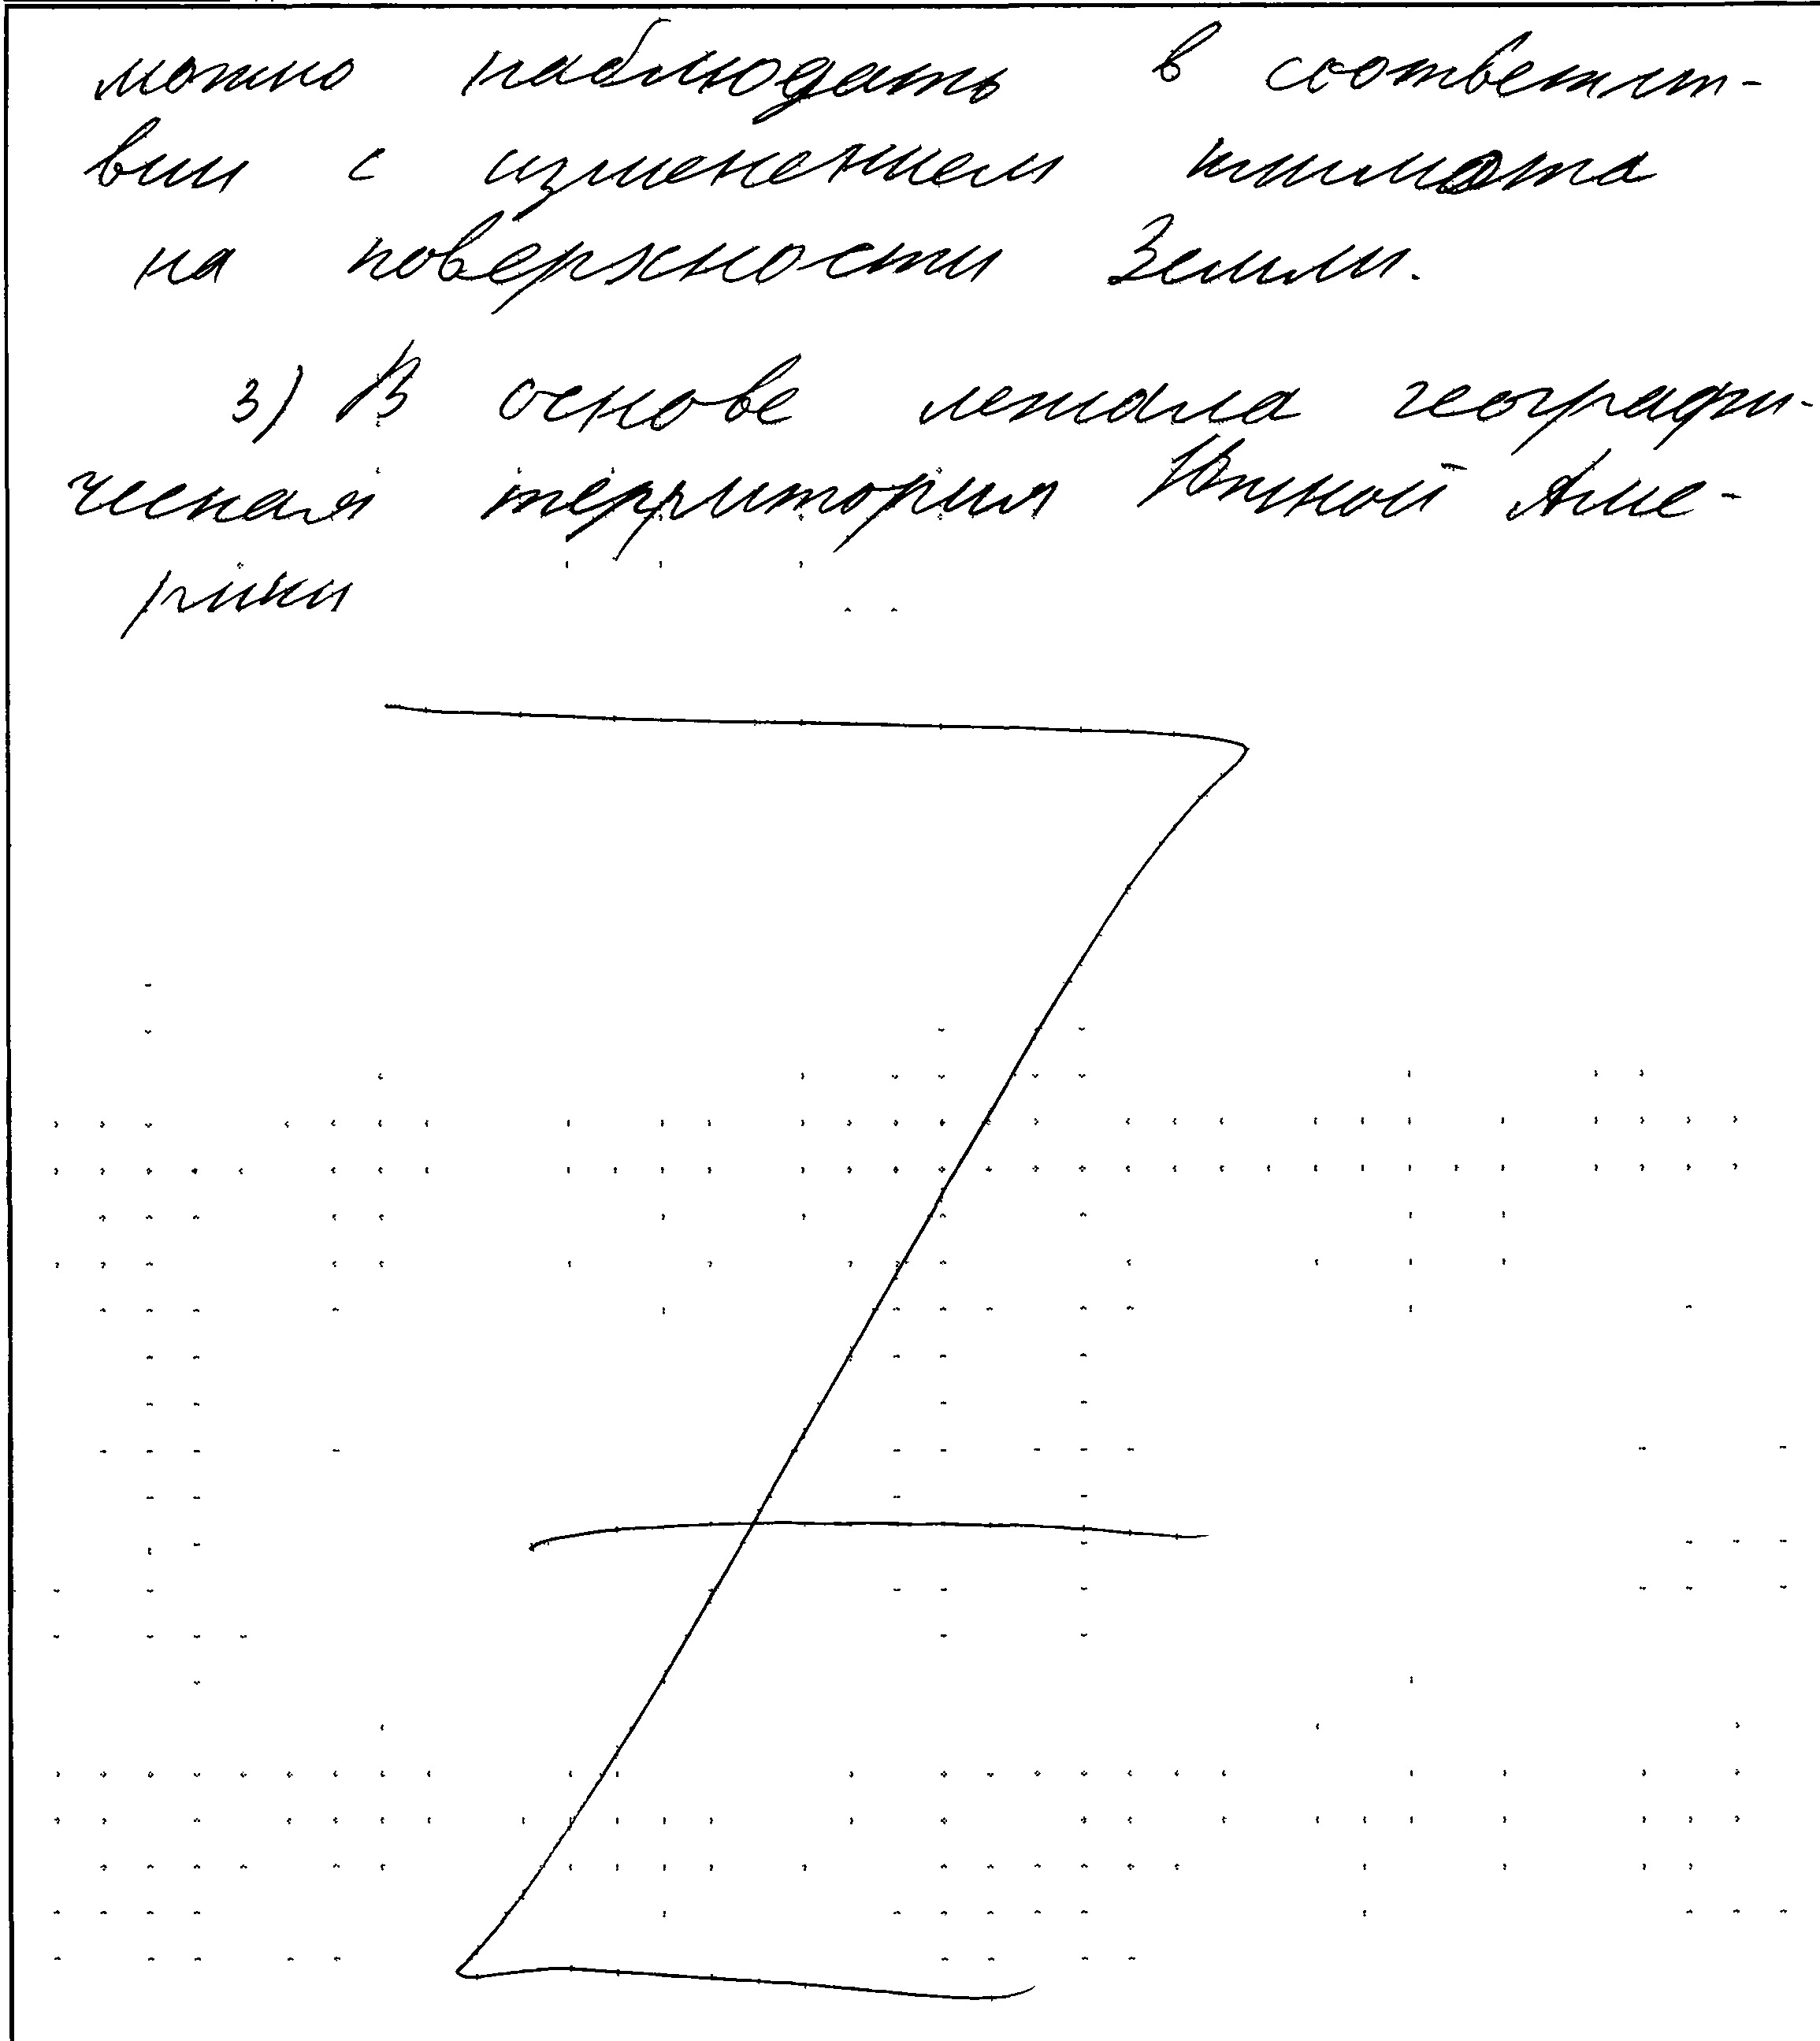 можно наблюдать в соответст-
вии с изменением климата
на поверхности Земли.
3) В основе лежала географи-
ческая территория Южной Аме-
рики